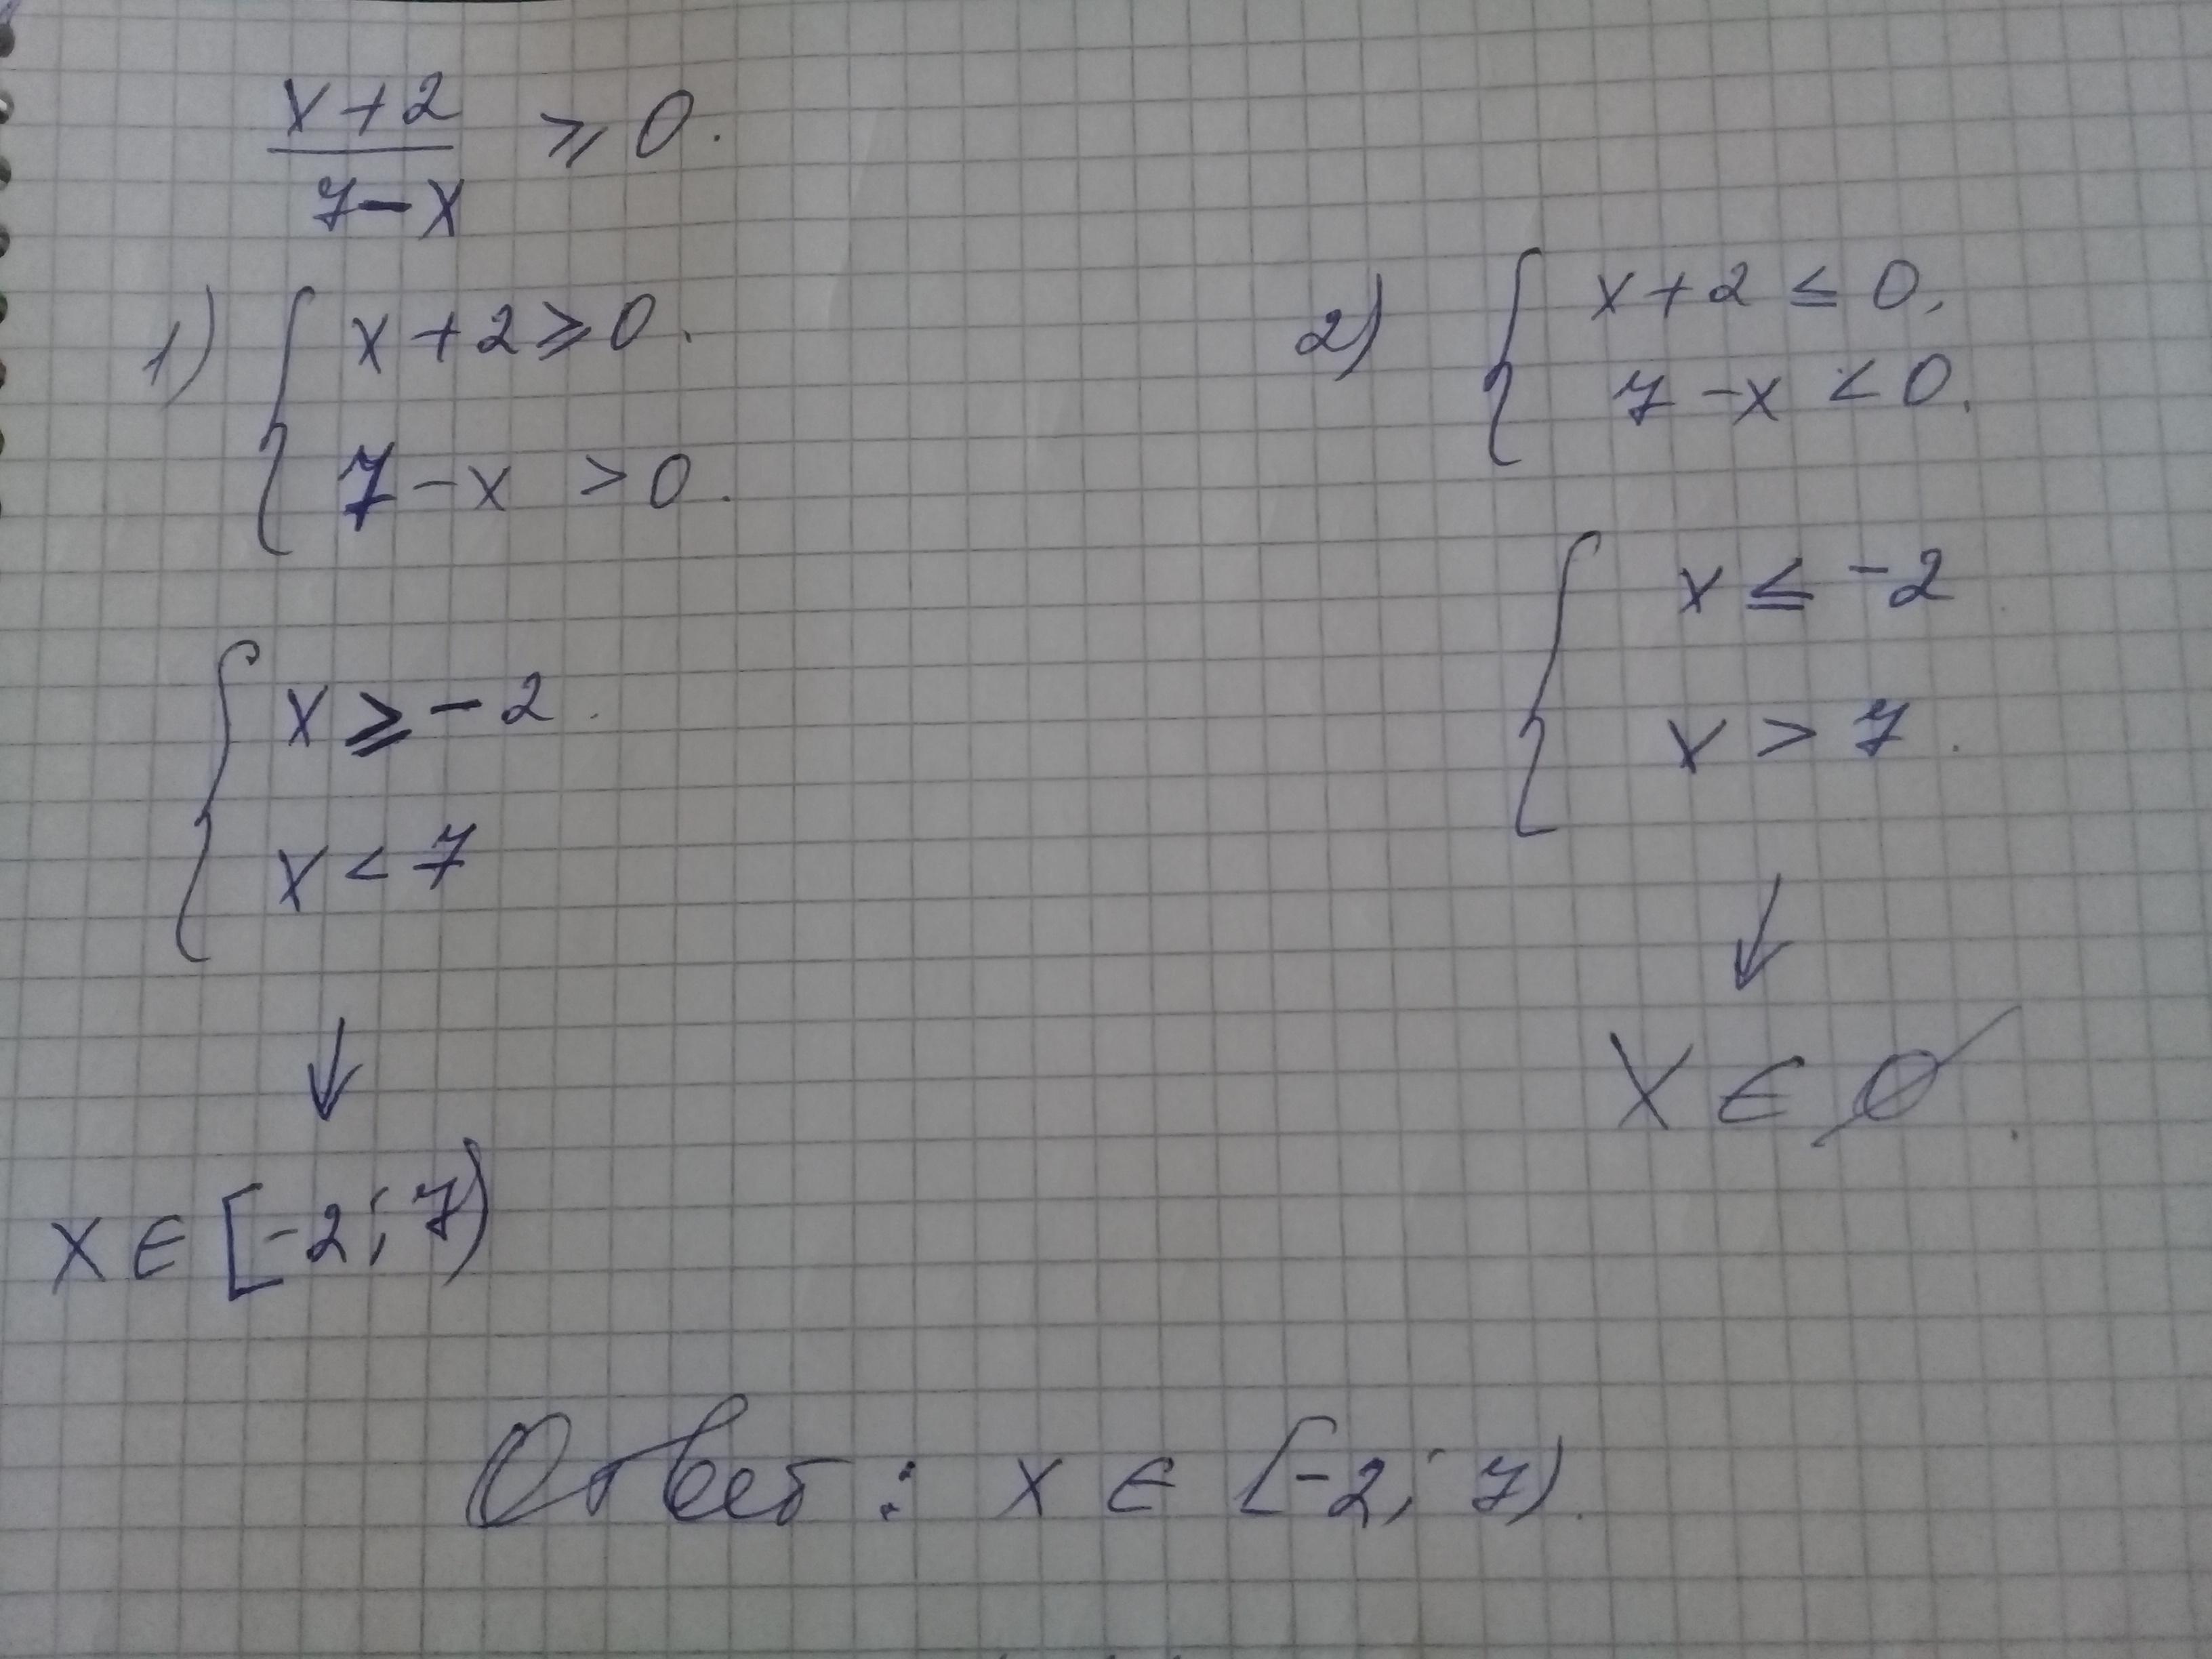 x+2
7-x ≥ 0.
1) { x+2≥0.
7-x >0.
{ x ≥ -2.
x < 7
↓
x ∈ [-2; 7)
2) { x+2 ≤ 0,
7-x <0.
{ x ≤ -2
x > 7.
↓
X ∈ ∅.
Ответ: x ∈ [-2; 7).